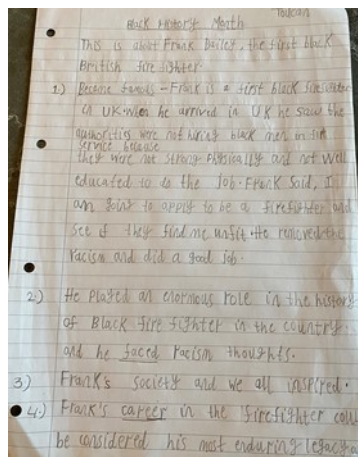 Toucan
Black History Month
This is about Frank Bailey, the first black
British firefighter.
1.) Became famous - Frank is a first black firefighter
in UK. When he arrived in UK he saw the
authorities were not hiring black men in fire
service because
they were not strong physically and not well
educated to do the job. Frank said, I
am going to apply to be a firefighter and
see if they find me unfit. He removed the
racism and did a good job.
2.) He played an enormous role in the history
of Black fire fighter in the country.
and he faced racism thoughts.
3) Frank's society and we all inspired.
4.) Frank's career in the firefighter coul
be considered his most enduring legacy